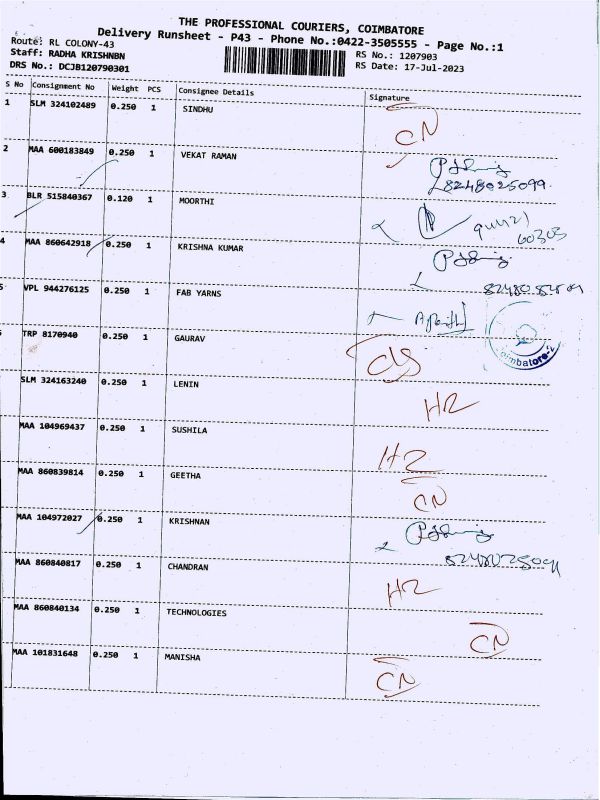 THE PROFESSIONAL COURIERS, COIMBATORE
Delivery Runsheet - P43 - Phone No.:0422-3505555 - Page No.:1
Route: RL COLONY-43
Staff: RADHA KRISHNBN
DRS No.: DCJB120790301
RS No.: 1207903
RS Date: 17-Jul-2023
S No Consignment No Weight PCS Consignee Details Signature
1 SLM 324102489 0.250 1 SINDHU CN
2 MAA 600183849 0.250 1 VEKAT RAMAN
8248025099
3 BLR 515840367 0.120 1 MOORTHI
60303
4 MAA 860642918 0.250 1 KRISHNA KUMAR
VPL 944276125 0.250 1 FAB YARNS
TRP 8170940 0.250 1 GAURAV
SLM 324163240 0.250 1 LENIN HZ
MAA 104969437 0.250 1 SUSHILA HZ
MAA 860839814 0.250 1 GEETHA CN
MAA 104972027 0.250 1 KRISHNAN
MAA 860840817 0.250 1 CHANDRAN HZ
MAA 860840134 0.250 1 TECHNOLOGIES CN
MAA 101831648 0.250 1 MANISHA CN